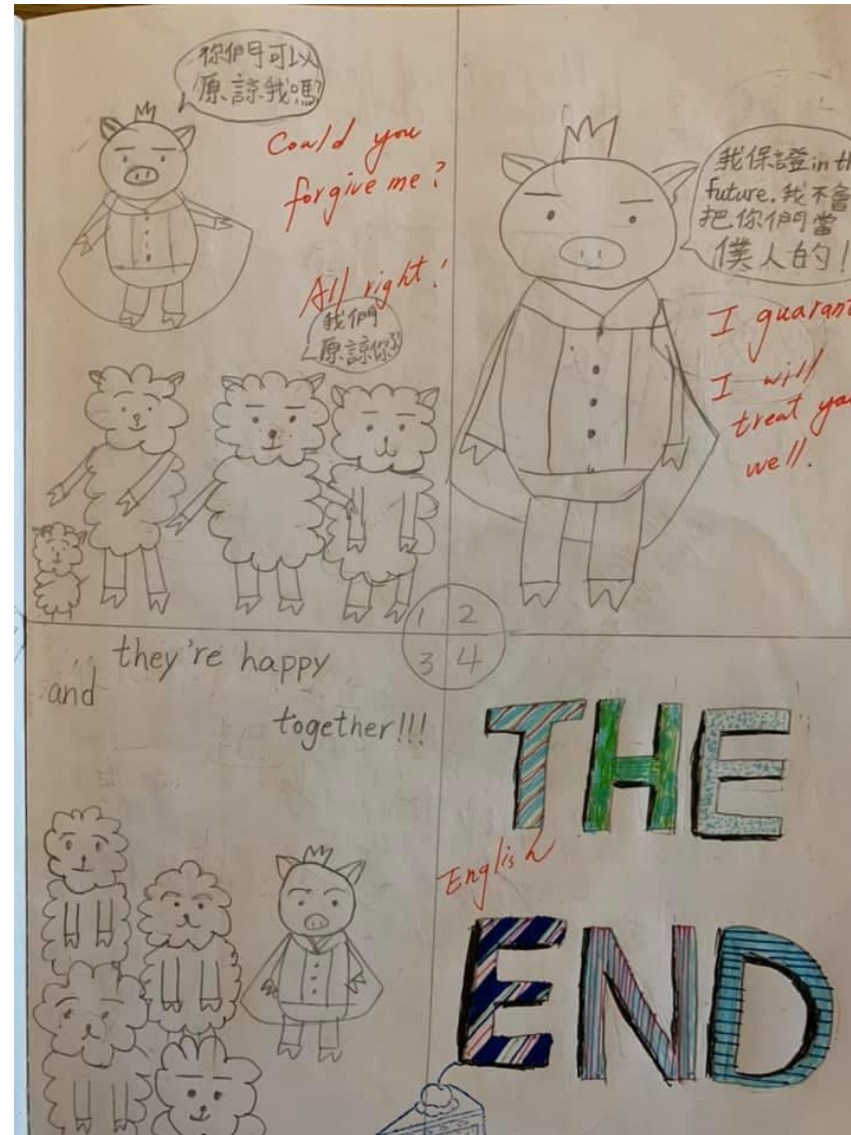 你們可以
原諒我嗎?
Could you
forgive me?
All right!
我們
原諒你
我保證in th
future, 我不會
把你們當
僕人的!
I guarant
I will
treat you
well.
1 2
3 4
and they're happy
together!!!
THE
English
END